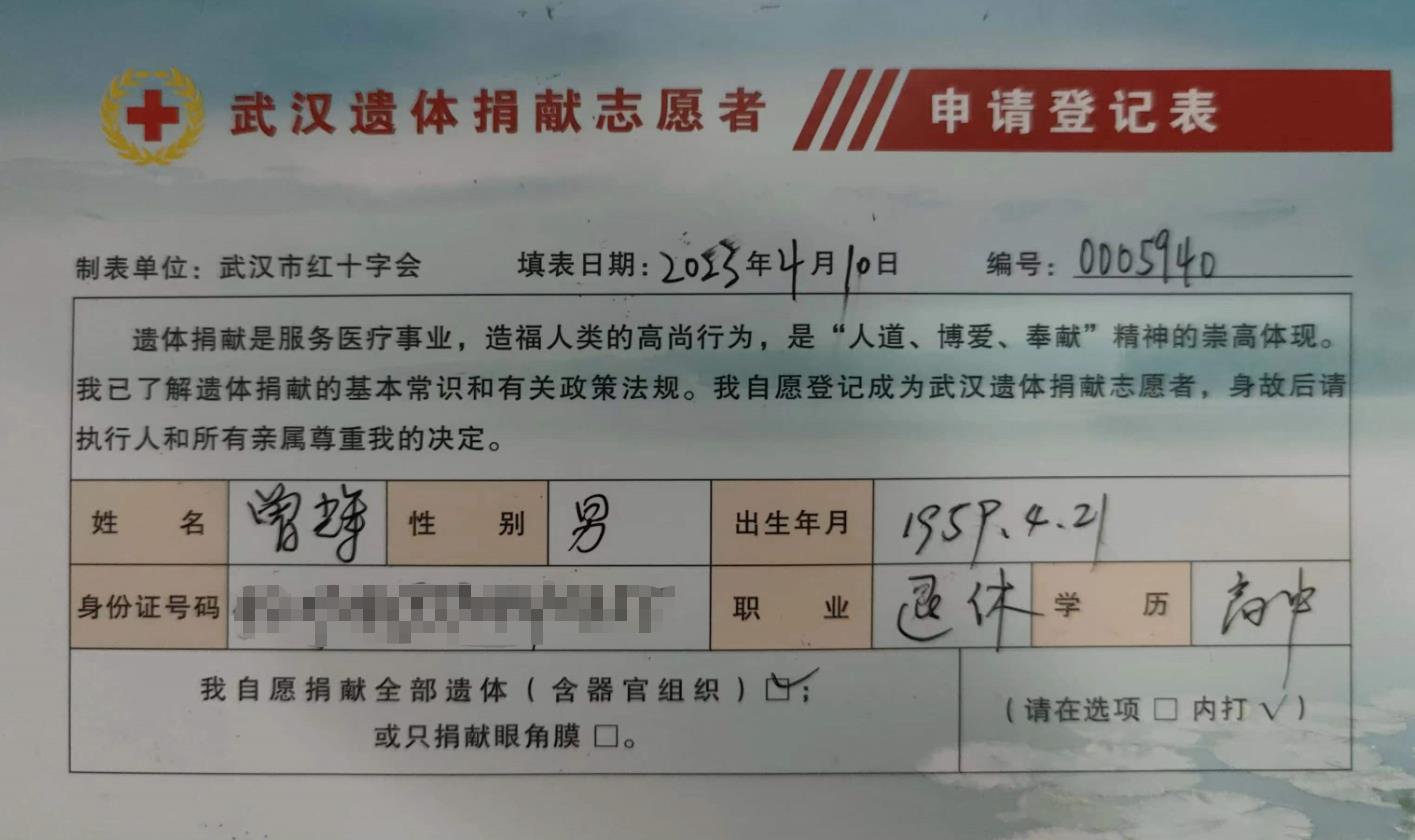 武汉遗体捐献志愿者 申请登记表
制表单位：武汉市红十字会 填表日期：2023年4月10日 编号：0005940
遗体捐献是服务医疗事业，造福人类的高尚行为，是“人道、博爱、奉献”精神的崇高体现。
我已了解遗体捐献的基本常识和有关政策法规。我自愿登记成为武汉遗体捐献志愿者，身故后请
执行人和所有亲属尊重我的决定。
姓 名 曾 性 别 男 出生年月 1959.4.21
身份证号码 职 业 退休 学 历 高中
我自愿捐献全部遗体（含器官组织）☑；
或只捐献眼角膜□。
（请在选项□内打√）